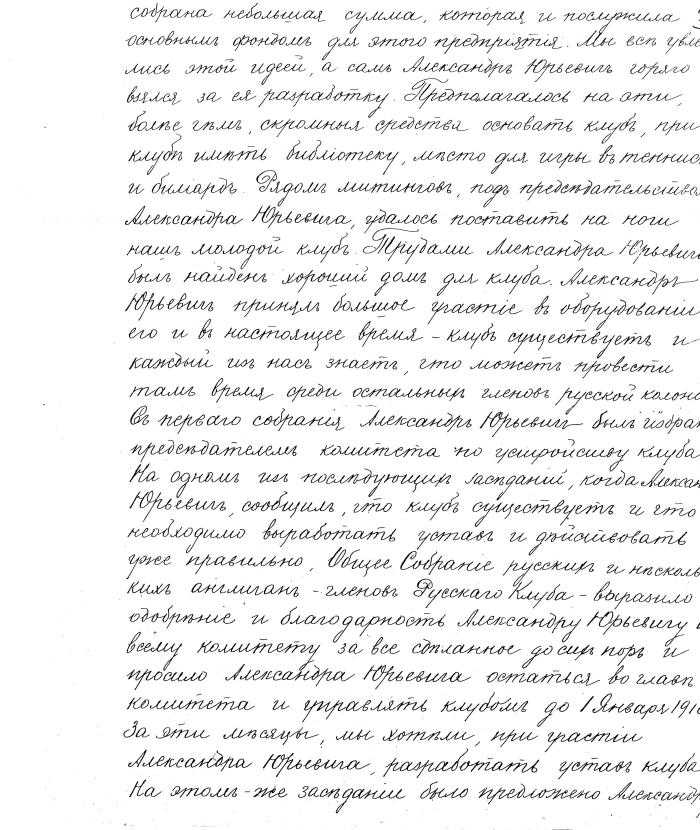 собрана небольшая сумма, которая и послужила
основнымъ фондомъ для этого предпріятія. Мы всѣ увле
лись этой идеей, а самъ Александръ Юрьевичъ горячо
взялся за ея разработку. Предполагалось на эти,
болѣе чѣмъ, скромныя средства основать клубъ, при
клубѣ имѣть библіотеку, мѣсто для игры въ теннис
и билліардъ. Рядомъ митинговъ, подъ предсѣдательство
Александра Юрьевича, удалось поставить на ноги
нашъ молодой клубъ. Трудами Александра Юрьевича
былъ найденъ хорошій домъ для клуба. Александръ
Юрьевичъ принялъ большое участіе въ оборудованіи
его и въ настоящее время – клубъ существуетъ и
каждый изъ насъ знаетъ, что можетъ провести
тамъ время среди остальныхъ членовъ русской колон
Съ перваго собранія Александръ Юрьевичъ былъ избран
предсѣдателемъ комитета по устройству клуба
На одномъ изъ послѣдующихъ засѣданій, когда Алексан
Юрьевичъ, сообщилъ, что клубъ существуетъ и что
необходимо выработать уставъ и дѣйствовать
уже правильно, Общее Собраніе русскихъ и нѣсколь
кихъ англичанъ – членовъ Русскаго Клуба – выразило
одобрѣніе и благодарность Александру Юрьевичу и
всему комитету за все сдѣланное до сихъ поръ и
просило Александра Юрьевича остаться во главѣ
комитета и управлять клубомъ до 1 Января 191
За эти мѣсяцы, мы хотѣли, при участіи
Александра Юрьевича, разработать уставъ клуба
На этомъ-же засѣданіи было предложено Александр